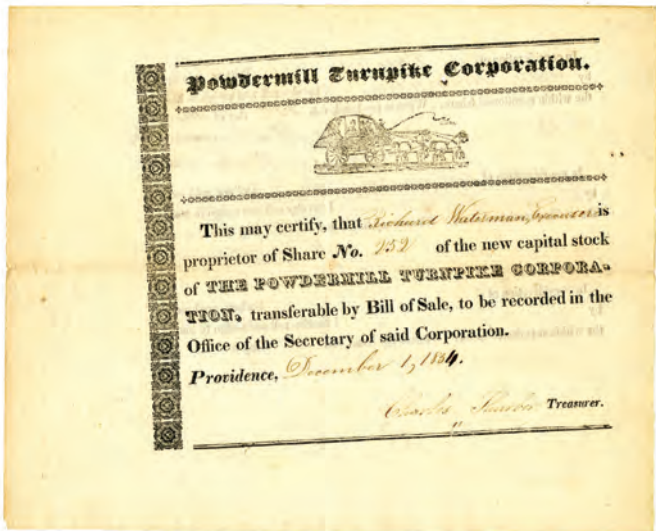 Powdermill Turnpike Corporation.
This may certify, that Richard Waterman, Executor is
proprietor of Share No. 232 of the new capital stock
of THE POWDERMILL TURNPIKE CORPORA-
TION, transferable by Bill of Sale, to be recorded in the
Office of the Secretary of said Corporation.
Providence, December 1, 1834.
Charles Treasurer.